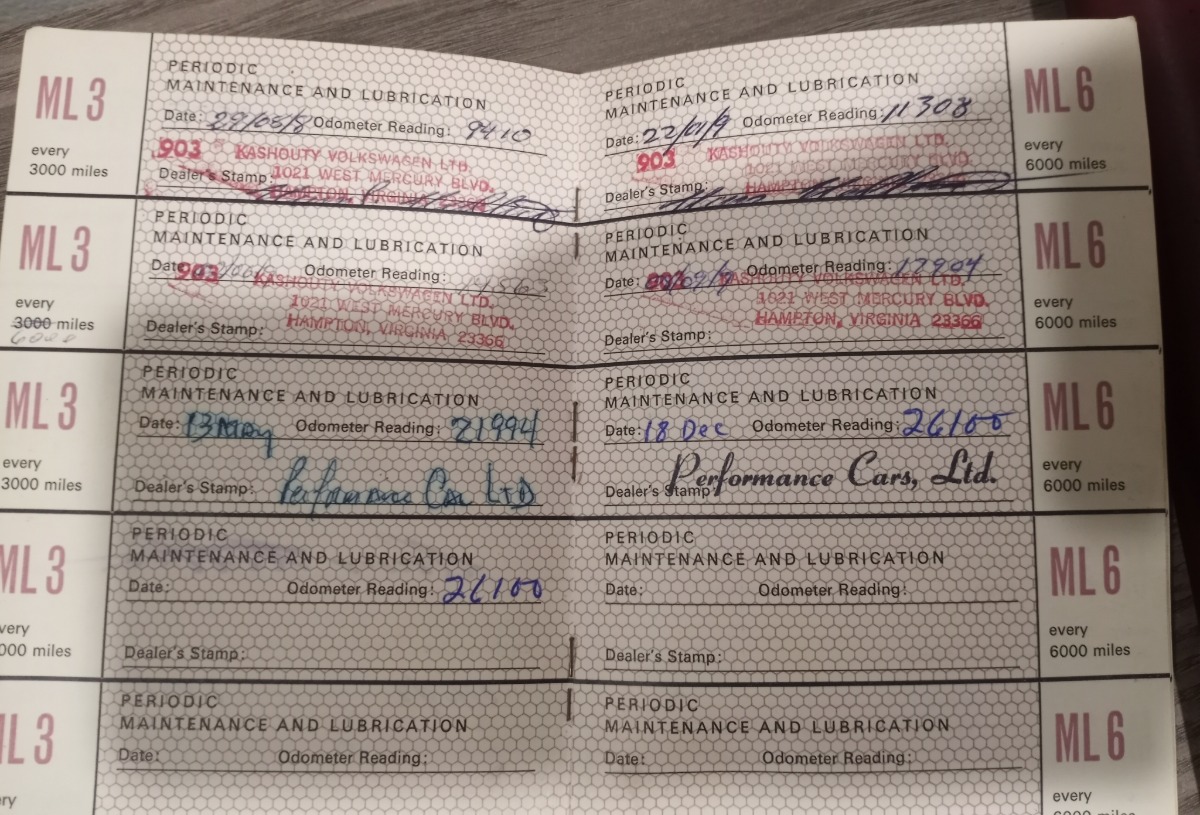 ML3
every
3000 miles
PERIODIC
MAINTENANCE AND LUBRICATION
Date: Odometer Reading: 9410
903 KASHOUTY VOLKSWAGEN LTD.
1021 WEST MERCURY BLVD.
Dealer's Stamp:
HAMPTON, VIRGINIA 23366
PERIODIC
MAINTENANCE AND LUBRICATION
Date: 22/01/9 Odometer Reading: 11308
903 KASHOUTY VOLKSWAGEN LTD.
1021 WEST MERCURY BLVD.
Dealer's Stamp:
HAMPTON
ML6
every
6000 miles
ML3
every
3000 miles
6000
PERIODIC
MAINTENANCE AND LUBRICATION
Date Odometer Reading:
903 KASHOUTY VOLKSWAGEN LTD.
1021 WEST MERCURY BLVD.
Dealer's Stamp:
HAMPTON, VIRGINIA 23366
PERIODIC
MAINTENANCE AND LUBRICATION
Date: Odometer Reading: 17904
KASHOUTY VOLKSWAGEN LTD.
1021 WEST MERCURY BLVD.
HAMPTON, VIRGINIA 23366
Dealer's Stamp:
ML6
every
6000 miles
ML3
every
3000 miles
PERIODIC
MAINTENANCE AND LUBRICATION
Date: 13 May Odometer Reading: 21994
Dealer's Stamp: Performance Car LTD
PERIODIC
MAINTENANCE AND LUBRICATION
Date: 18 Dec Odometer Reading: 26100
Performance Cars, Ltd.
Dealer's Stamp:
ML6
every
6000 miles
ML3
very
000 miles
PERIODIC
MAINTENANCE AND LUBRICATION
Date: Odometer Reading: 26100
Dealer's Stamp:
PERIODIC
MAINTENANCE AND LUBRICATION
Date: Odometer Reading:
Dealer's Stamp:
ML6
every
6000 miles
L3
ry
PERIODIC
MAINTENANCE AND LUBRICATION
Date: Odometer Reading:
PERIODIC
MAINTENANCE AND LUBRICATION
Date: Odometer Reading:
ML6
every
6000 miles